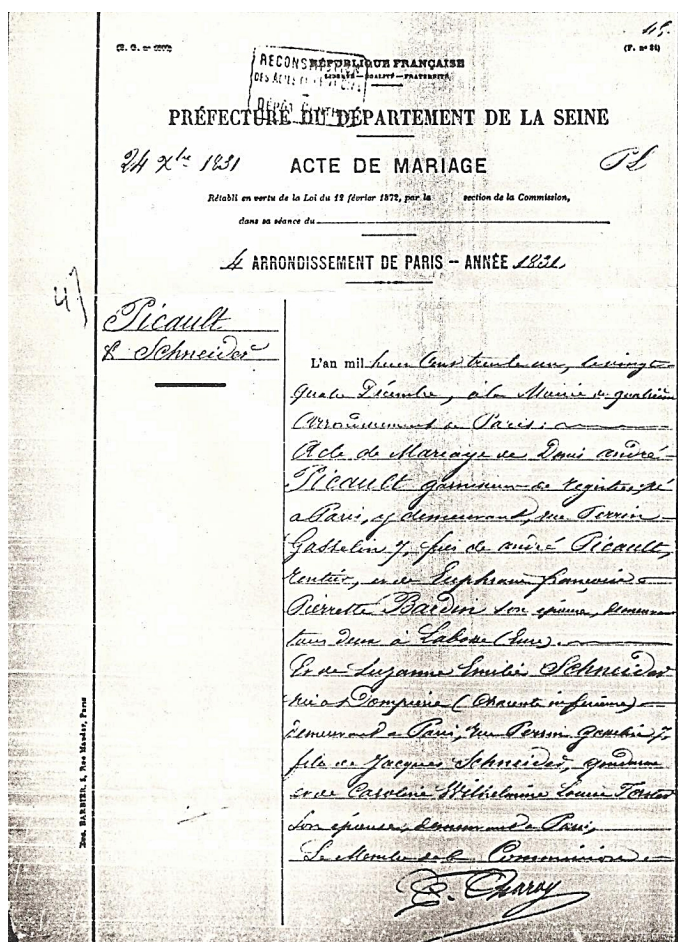 RÉPUBLIQUE FRANÇAISE
LIBERTÉ — ÉGALITÉ — FRATERNITÉ
PRÉFECTURE DU DÉPARTEMENT DE LA SEINE
24 Xbre 1831
ACTE DE MARIAGE
Rétabli en vertu de la Loi du 12 février 1872, par la section de la Commission,
dans sa séance du
4 ARRONDISSEMENT DE PARIS – ANNÉE 1831
47
Picault
& Schneider
L'an mil huit cent trente un, le vingt
quatre Décembre, à la Mairie du quatrième
arrondissement de Paris.
Acte de Mariage de Denis André
Picault garnisseur de registres, né
à Paris, y demeurant, rue Perrin
Gasselin 7, fils de André Picault,
rentier, et de Euphrasie françoise
Pierrette Bardin son épouse, demeurant
tous deux à (Eure).
Et de Suzanne Emilie Schneider
née à Dompierre (Charente inférieure)
demeurant à Paris, rue Perrin Gasselin 7,
fille de Jacques Schneider,
et de Caroline Wilhelmine Louise
son épouse, demeurant à Paris,
Le Membre de la Commission
Imp. BARBIER, 5, Rue Mandar, Paris